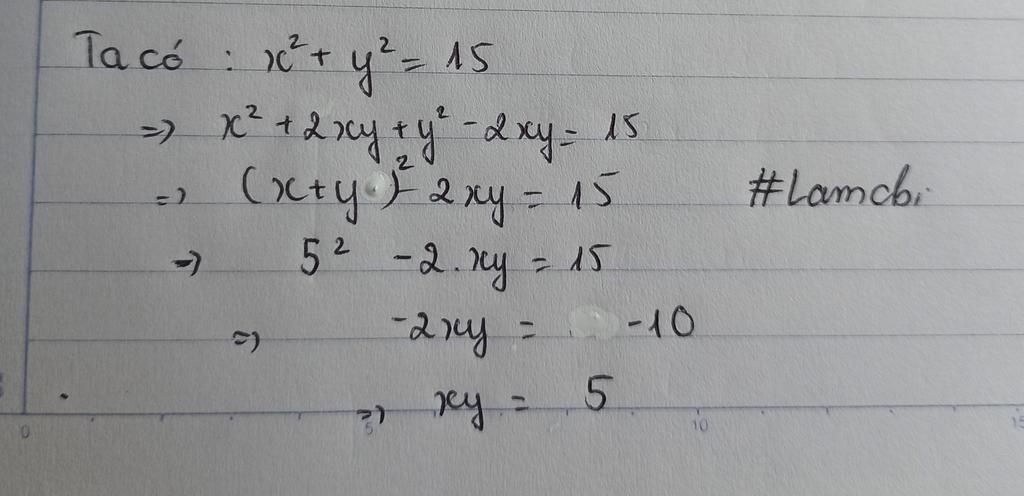 Ta có : x² + y² = 15
=> x² + 2xy + y² - 2xy = 15
=> (x+y)² - 2xy = 15 #Lamcbi
=> 5² - 2.xy = 15
=> -2xy = -10
=> xy = 5
0 5 10 15